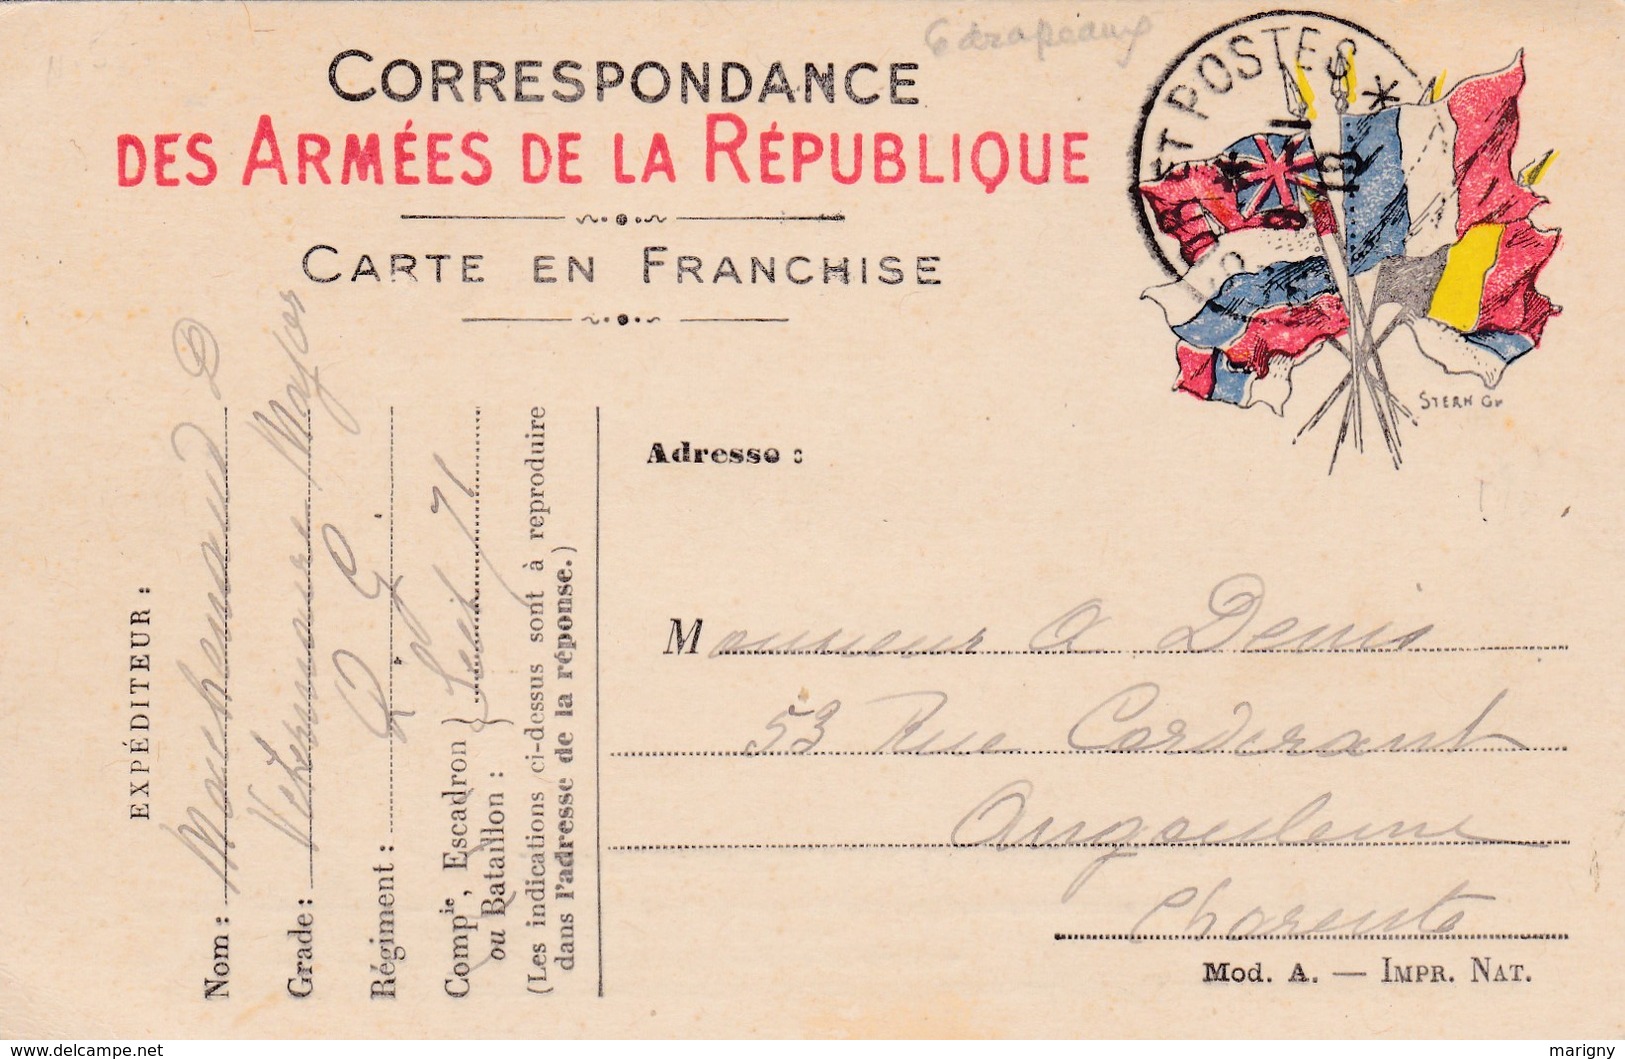 6 drapeaux
CORRESPONDANCE
DES ARMÉES DE LA RÉPUBLIQUE
CARTE EN FRANCHISE
ET POSTES *
STERN Gr
EXPÉDITEUR :
Nom : D
Grade : Major
Régiment :
Compie, Escadron
ou Bataillon : } 71
(Les indications ci-dessus sont à reproduire
dans l'adresse de la réponse.)
Adresse :
Monsieur A Denis
53 Rue Corderant
Angouleme
Charente
MOD. A. — IMPR. NAT.
www.delcampe.net
marigny